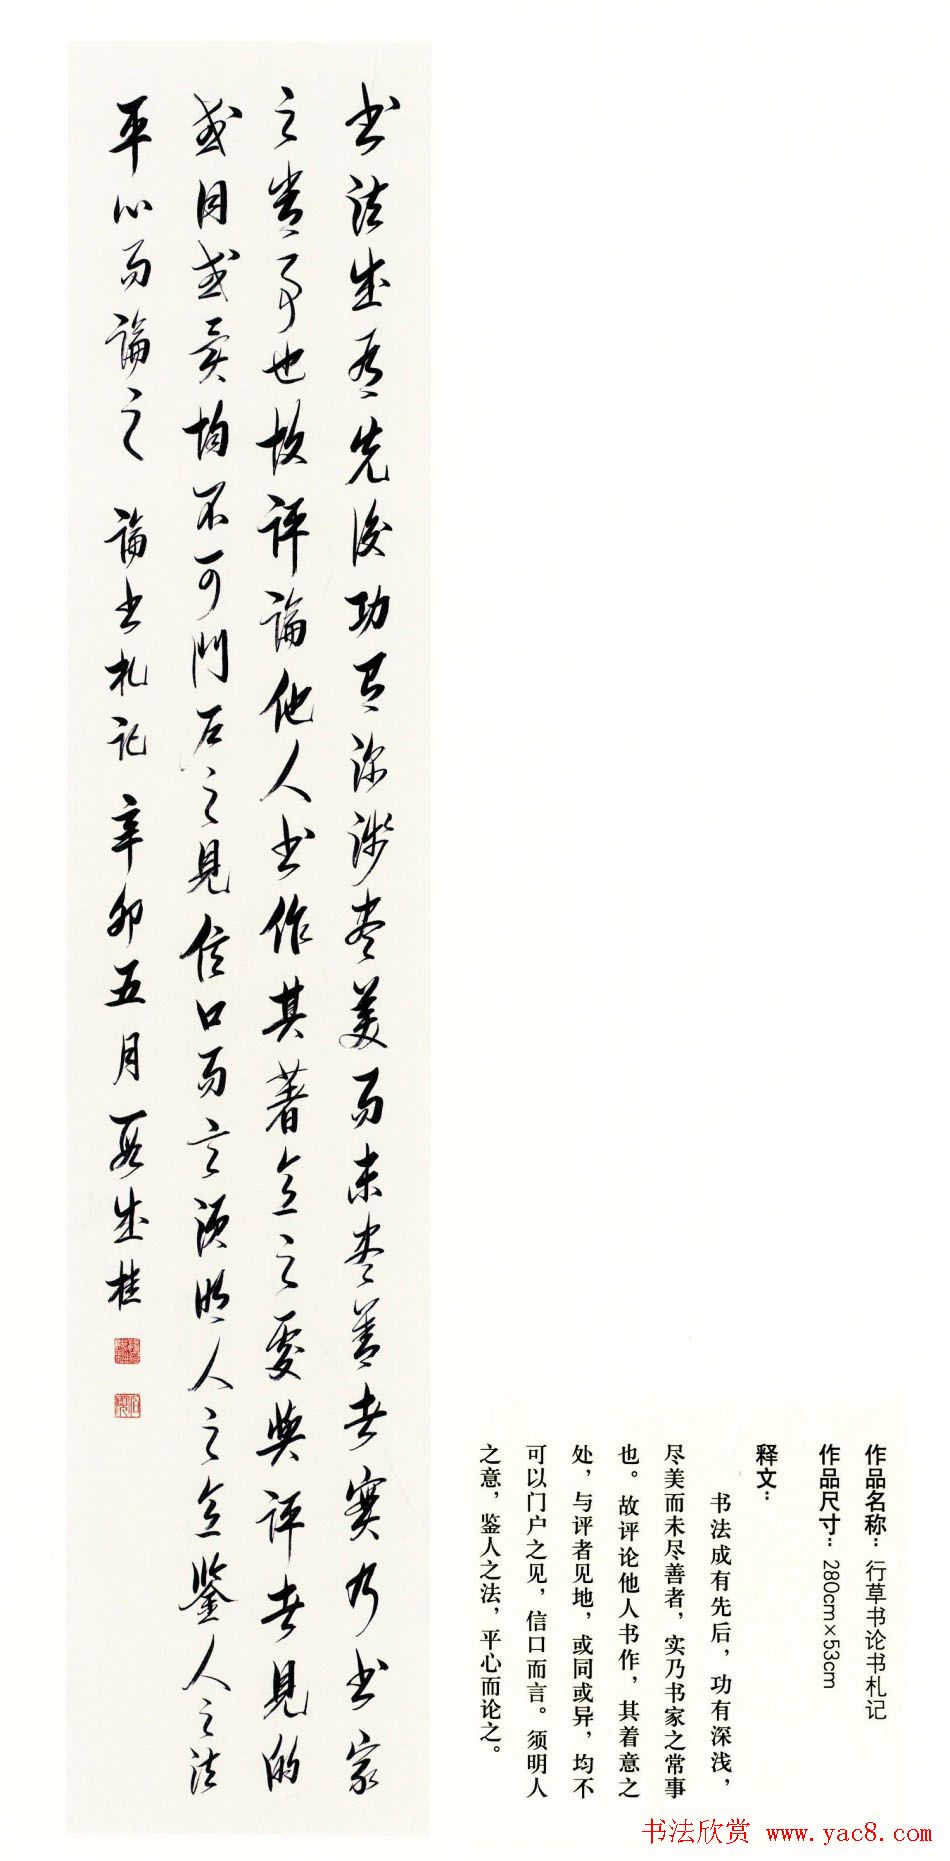 书法成有先後功有深浅尽美而未尽善者實乃书家
之常事也故评論他人书作其著意之处與评者見地
或同或異均不可門户之見信口而言须明人之意鉴人之法
平心而論之 論书札记 辛卯五月 段成桂
作品名称：行草书论书札记
作品尺寸：280cm×53cm
释文：
书法成有先后，功有深浅，
尽美而未尽善者，实乃书家之常事
也。故评论他人书作，其着意之
处，与评者见地，或同或异，均不
可以门户之见，信口而言。须明人
之意，鉴人之法，平心而论之。
书法欣赏 www.yac8.com